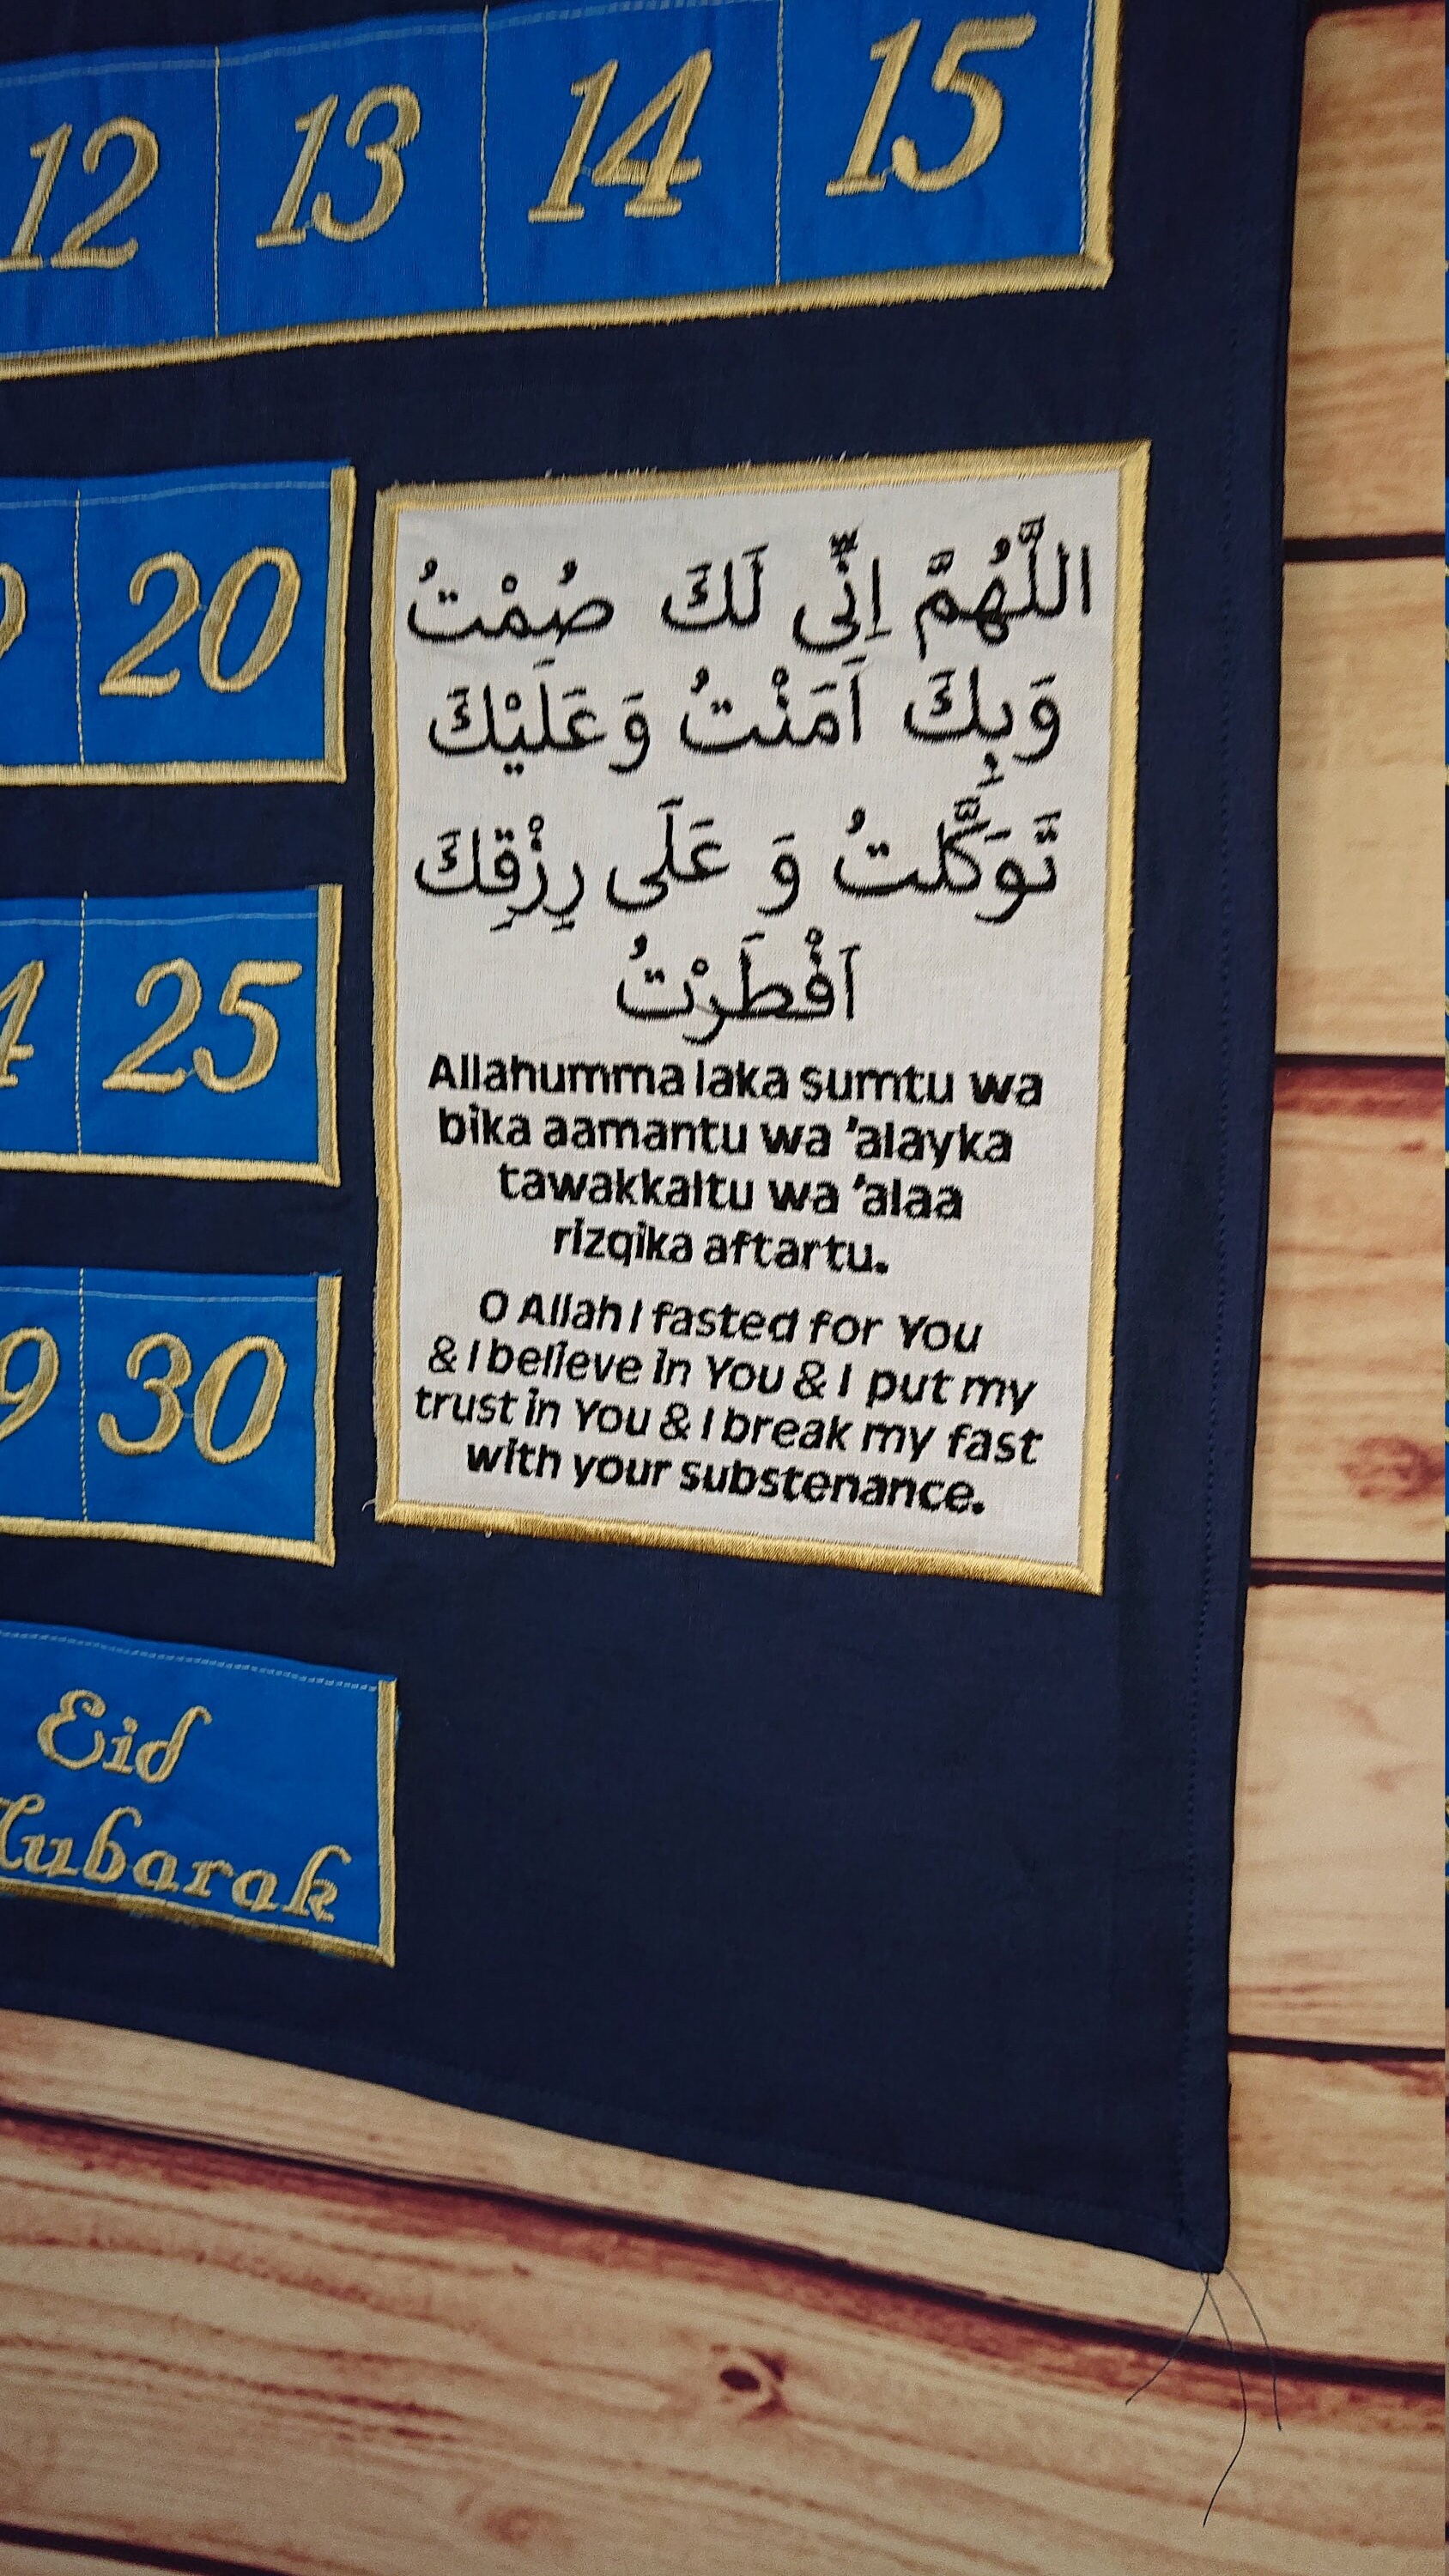 12 13 14 15
20
25
30
اللَّهُمَّ اِنِّى لَكَ صُمْتُ
وَبِكَ اَمَنْتُ وَعَلَيْكَ
تَوَكَّلتُ وَ عَلَى رِزْقِكَ
اَفْطَرْتُ
Allahumma laka sumtu wa
bika aamantu wa 'alayka
tawakkaltu wa 'alaa
rizqika aftartu.
O Allah I fasted for You
& I believe in You & I put my
trust in You & I break my fast
with your substenance.
Eid
Mubarak